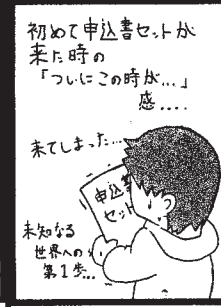 初めて申込書セットが
来た時の
「ついにこの時が…」
感‥‥
来てしまった…
申込書
セット
未知なる
世界への
第1歩…